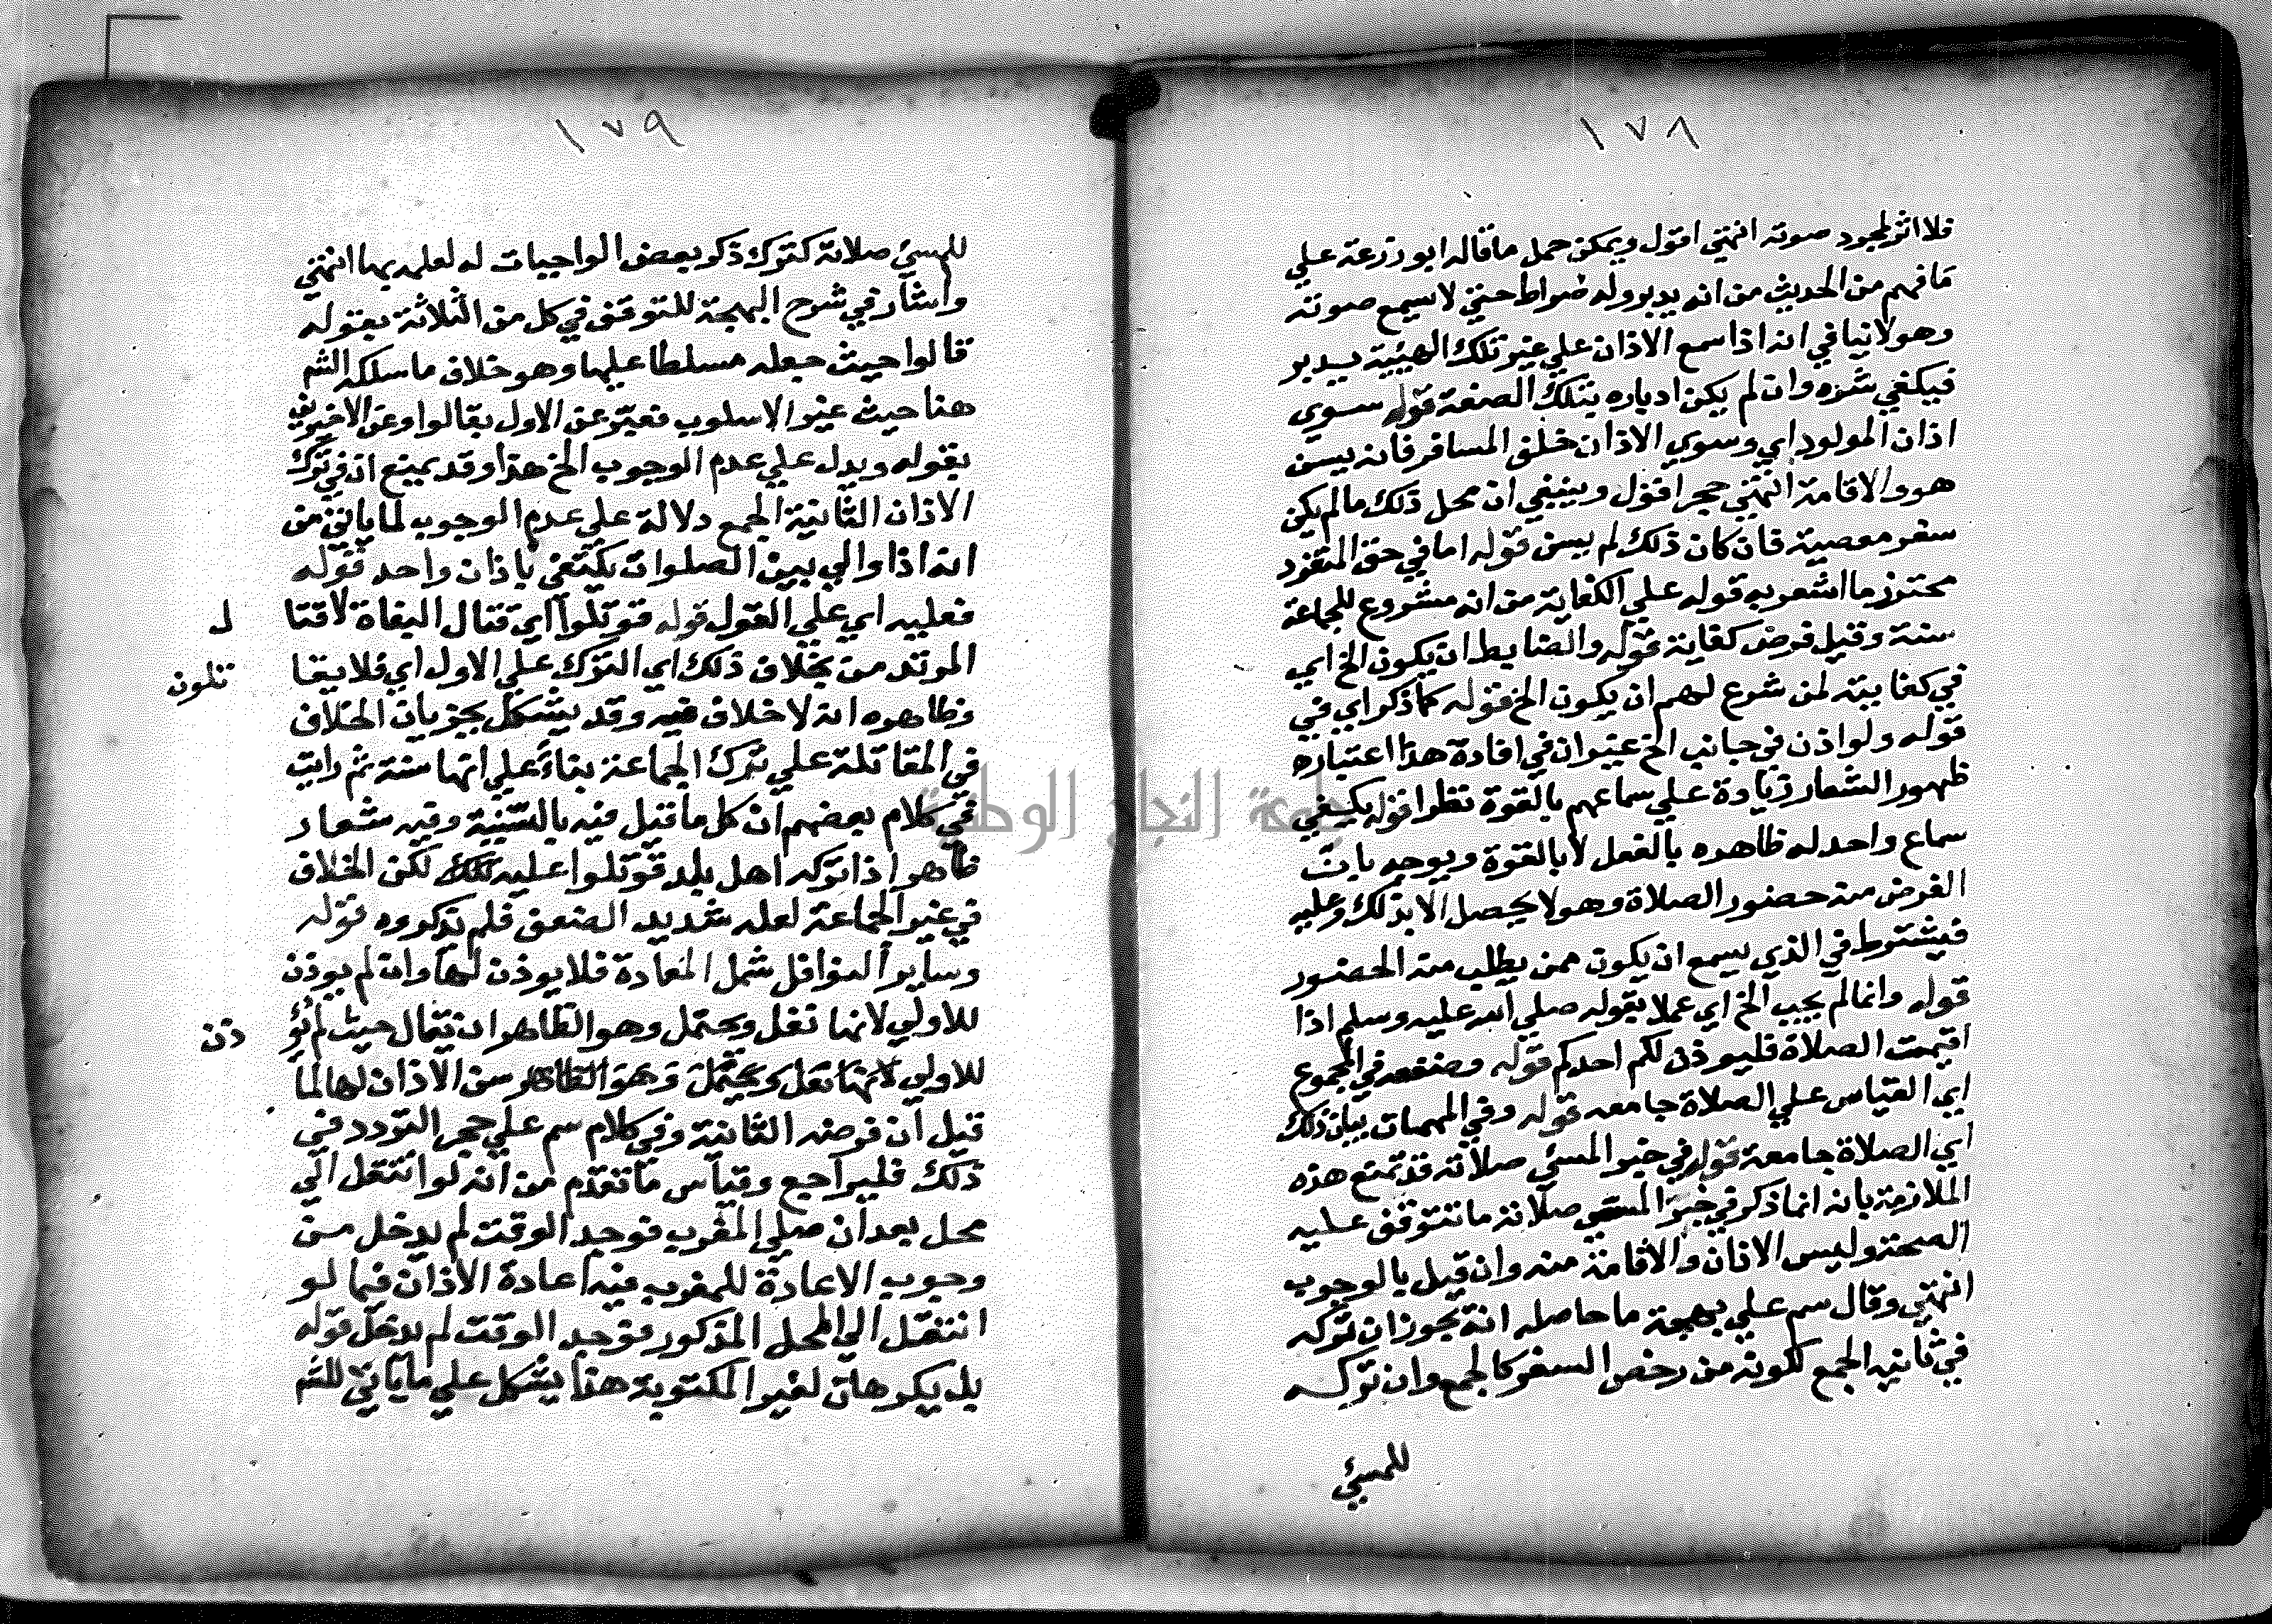 ١٧٨
فلا اثر لمجرد صوته انتهي اقول ويمكن حمل ما قاله ابو زرعة علي
ما فهم من الحديث من انه يدبر وله ضراط حتي لا يسمع صوته
وهو لا ينافي انه اذا سمع الاذان علي غير تلك الهيئية يدبر
فيكفي شره وان لم يكن ادباره بتلك الصفة قوله سوي
اذان المولود اي وسوي الاذان خلف المسافر فانه يسن
هو والاقامة انتهي حجر اقول وينبغي ان محل ذلك ما لم يكن
سفر معصية فان كان ذلك لم يسن قوله اما في حق المنفرد
محترز ما اشعر به قوله علي الكفاية من انه مشروع للجماعة
سنة وقيل فرض كفاية قوله والضابط ان يكون الخ اي
في كفايته لمن شرع لهم ان يكون الخ قوله كما ذكر اي في
قوله ولو اذن في جانب الخ غير ان في افادة هذا اعتباره
ظهور الشعار زيادة علي سماعهم بالقوة نظرا قوله يكفي
سماع واحد له ظاهره بالفعل لا بالقوة ويوجه بان
الغرض منه حضور الصلاة وهو لا يحصل الا بذلك وعليه
فيشترط في الذي يسمع ان يكون ممن يطلب منه الحضور
قوله وانما لم يجب الخ اي عملا بقوله صلي الله عليه وسلم اذا
اقيمت الصلاة فليوذن لكم احدكم قوله وضعفه في المجموع
اي القياس علي الصلاة جامعه قوله وفي المهمات بيان ذلك
اي الصلاة جامعة قوله في خبر المسئي صلاته قد تمنع هذه
الملازمة بانه انما ذكر في خبر المسئي صلاته ما تتوقف عليه
الصحة وليس الاذان والاقامة منه وان قيل بالوجوب
انتهي وقال سم علي بهجة ما حاصله انه يجوز ان تركه
في ثانيه الجمع لكونه من رخص السفر كالجمع وان تركه
للمسئي
١٧٩
للمسئي صلاته كترك ذكر بعض الواجبات له لعلمه بها انتهي
واشار في شرح البهجة للتوقف في كل من الثلاثة بقوله
قالوا حيث جعله مسلطا عليها وهو خلاف ما سلكه الشم
هنا حيث غير الاسلوب فعبر عن الاول بقالوا وعن الاخيرين
بقوله ويدل علي عدم الوجوب الخ هذا وقد يمنع ان في ترك
الاذان الثانية الجمع دلالة علي عدم الوجوب لما ياتي من
انه اذا والي بين الصلوات يكتفي باذان واحد قوله
فعليه اي علي القول قوله قوتلوا اي قتال البغاة لا قتا ل
المرتد من بخلاف ذلك اي الترك علي الاول اي فلا يقا تلون
وظاهره انه لا خلاف فيه وقد يشكل بجريان الخلاف
في المقاتلة علي ترك الجماعة بناءً علي انها سنة ثم رايت
في كلام بعضهم ان كل ما قيل فيه بالسنية وفيه شعار
ظاهر اذا تركه اهل بلد قوتلوا عليه لكن الخلاف
في غير الجماعة لعله شديد الضعف فلم يذكروه قوله
وساير النوافل شمل المعادة فلا يوذن لها وان لم يوذن
للاولي لانها نفل ويحتمل وهو الظاهر ان يقال حيث لم يؤ ذن
للاولي لانها نفل ويحتمل وهو الظاهر سن الاذان لها لما
قيل ان فرضه الثانية وفي كلام سم علي حجر التردد في
ذلك فليراجع وقياس ما تقدم من انه لو انتقل الي
محل بعد ان صلي المغرب فوجد الوقت لم يدخل من
وجوب الاعادة للمغرب فيه اعادة الاذان فيما لو
انتقل الي المحل المذكور فوجد الوقت لم يدخل قوله
بل يكرهان لغير المكتوبة هذا يشكل علي ما ياتي للشم
جامعة النجاح الوطنية